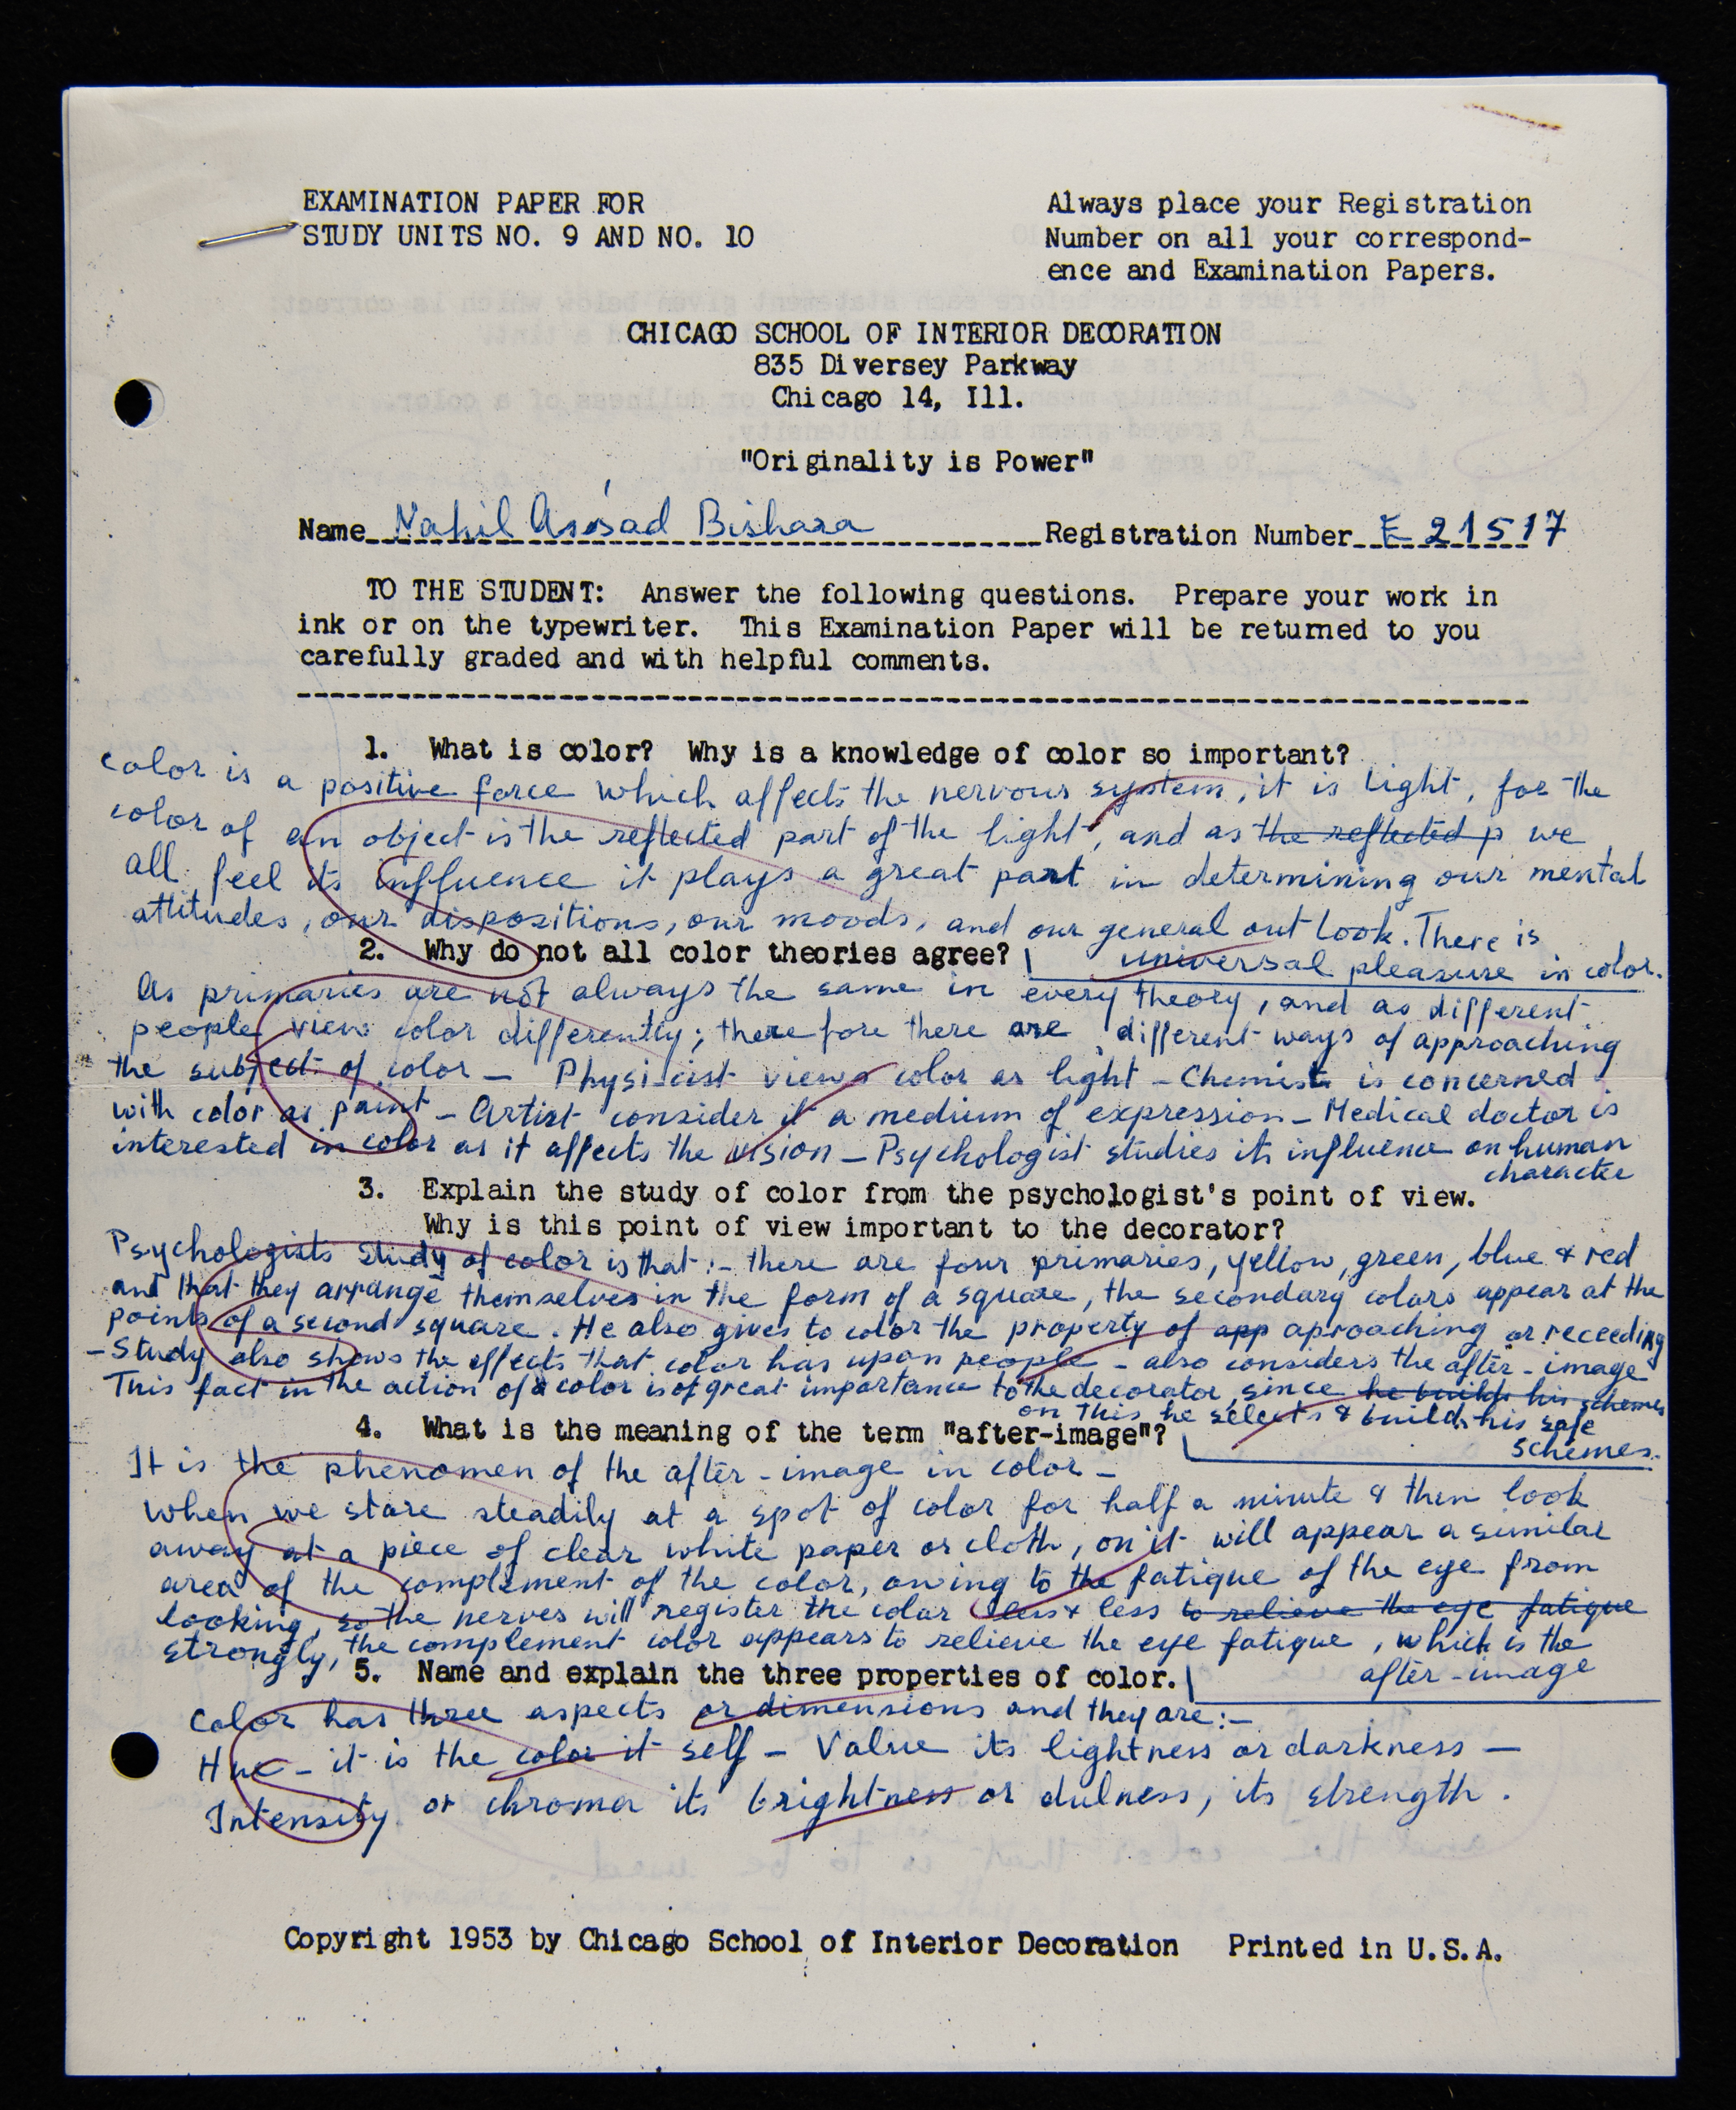 EXAMINATION PAPER FOR
STUDY UNITS NO. 9 AND NO. 10
Always place your Registration
Number on all your correspond-
ence and Examination Papers.
CHICAGO SCHOOL OF INTERIOR DECORATION
835 Diversey Parkway
Chicago 14, Ill.
"Originality is Power"
Name Nahil Assad Bishara Registration Number E 21517
TO THE STUDENT: Answer the following questions. Prepare your work in
ink or on the typewriter. This Examination Paper will be returned to you
carefully graded and with helpful comments.
1. What is color? Why is a knowledge of color so important?
Color is a positive force which affects the nervous system, it is light, for the
color of an object is the reflected part of the light, and as the reflected p we
all feel its influence it plays a great part in determining our mental
attitudes, our dispositions, our moods, and our general out look. There is
universal pleasure in color.
2. Why do not all color theories agree?
As primaries are not always the same in every theory, and as different
people view color differently; therefore there are different ways of approaching
the subject of color - Physicist views color as light - Chemist is concerned
with color as paint - Artist consider it a medium of expression - Medical doctor is
interested in color as it affects the vision - Psychologist studies its influence on human
character
3. Explain the study of color from the psychologist's point of view.
Why is this point of view important to the decorator?
Psychologists study of color is that :- there are four primaries, yellow, green, blue & red
and that they arrange themselves in the form of a square, the secondary colors appear at the
points of a second square. He also gives to color the property of app aproaching or receeding
- Study also shows the effects that color has upon people - also considers the after-image
This fact in the action of a color is of great importance to the decorator, since he builds his schemes
on this he selects & builds his safe
schemes.
4. What is the meaning of the term "after-image"?
It is the phenomen of the after-image in color -
When we stare steadily at a spot of color for half a minute & then look
away at a piece of clear white paper or cloth, on it will appear a similar
area of the complement of the color, owing to the fatigue of the eye from
looking, so the nerves will register the color less & less to relieve the eye fatigue
strongly, the complement color appears to relieve the eye fatigue, which is the
after-image
5. Name and explain the three properties of color.
Color has three aspects or dimensions and they are :-
Hue - it is the color it self - Value its lightness or darkness -
Intensity or chroma its brightness or dulness, its strength.
Copyright 1953 by Chicago School of Interior Decoration Printed in U.S.A.